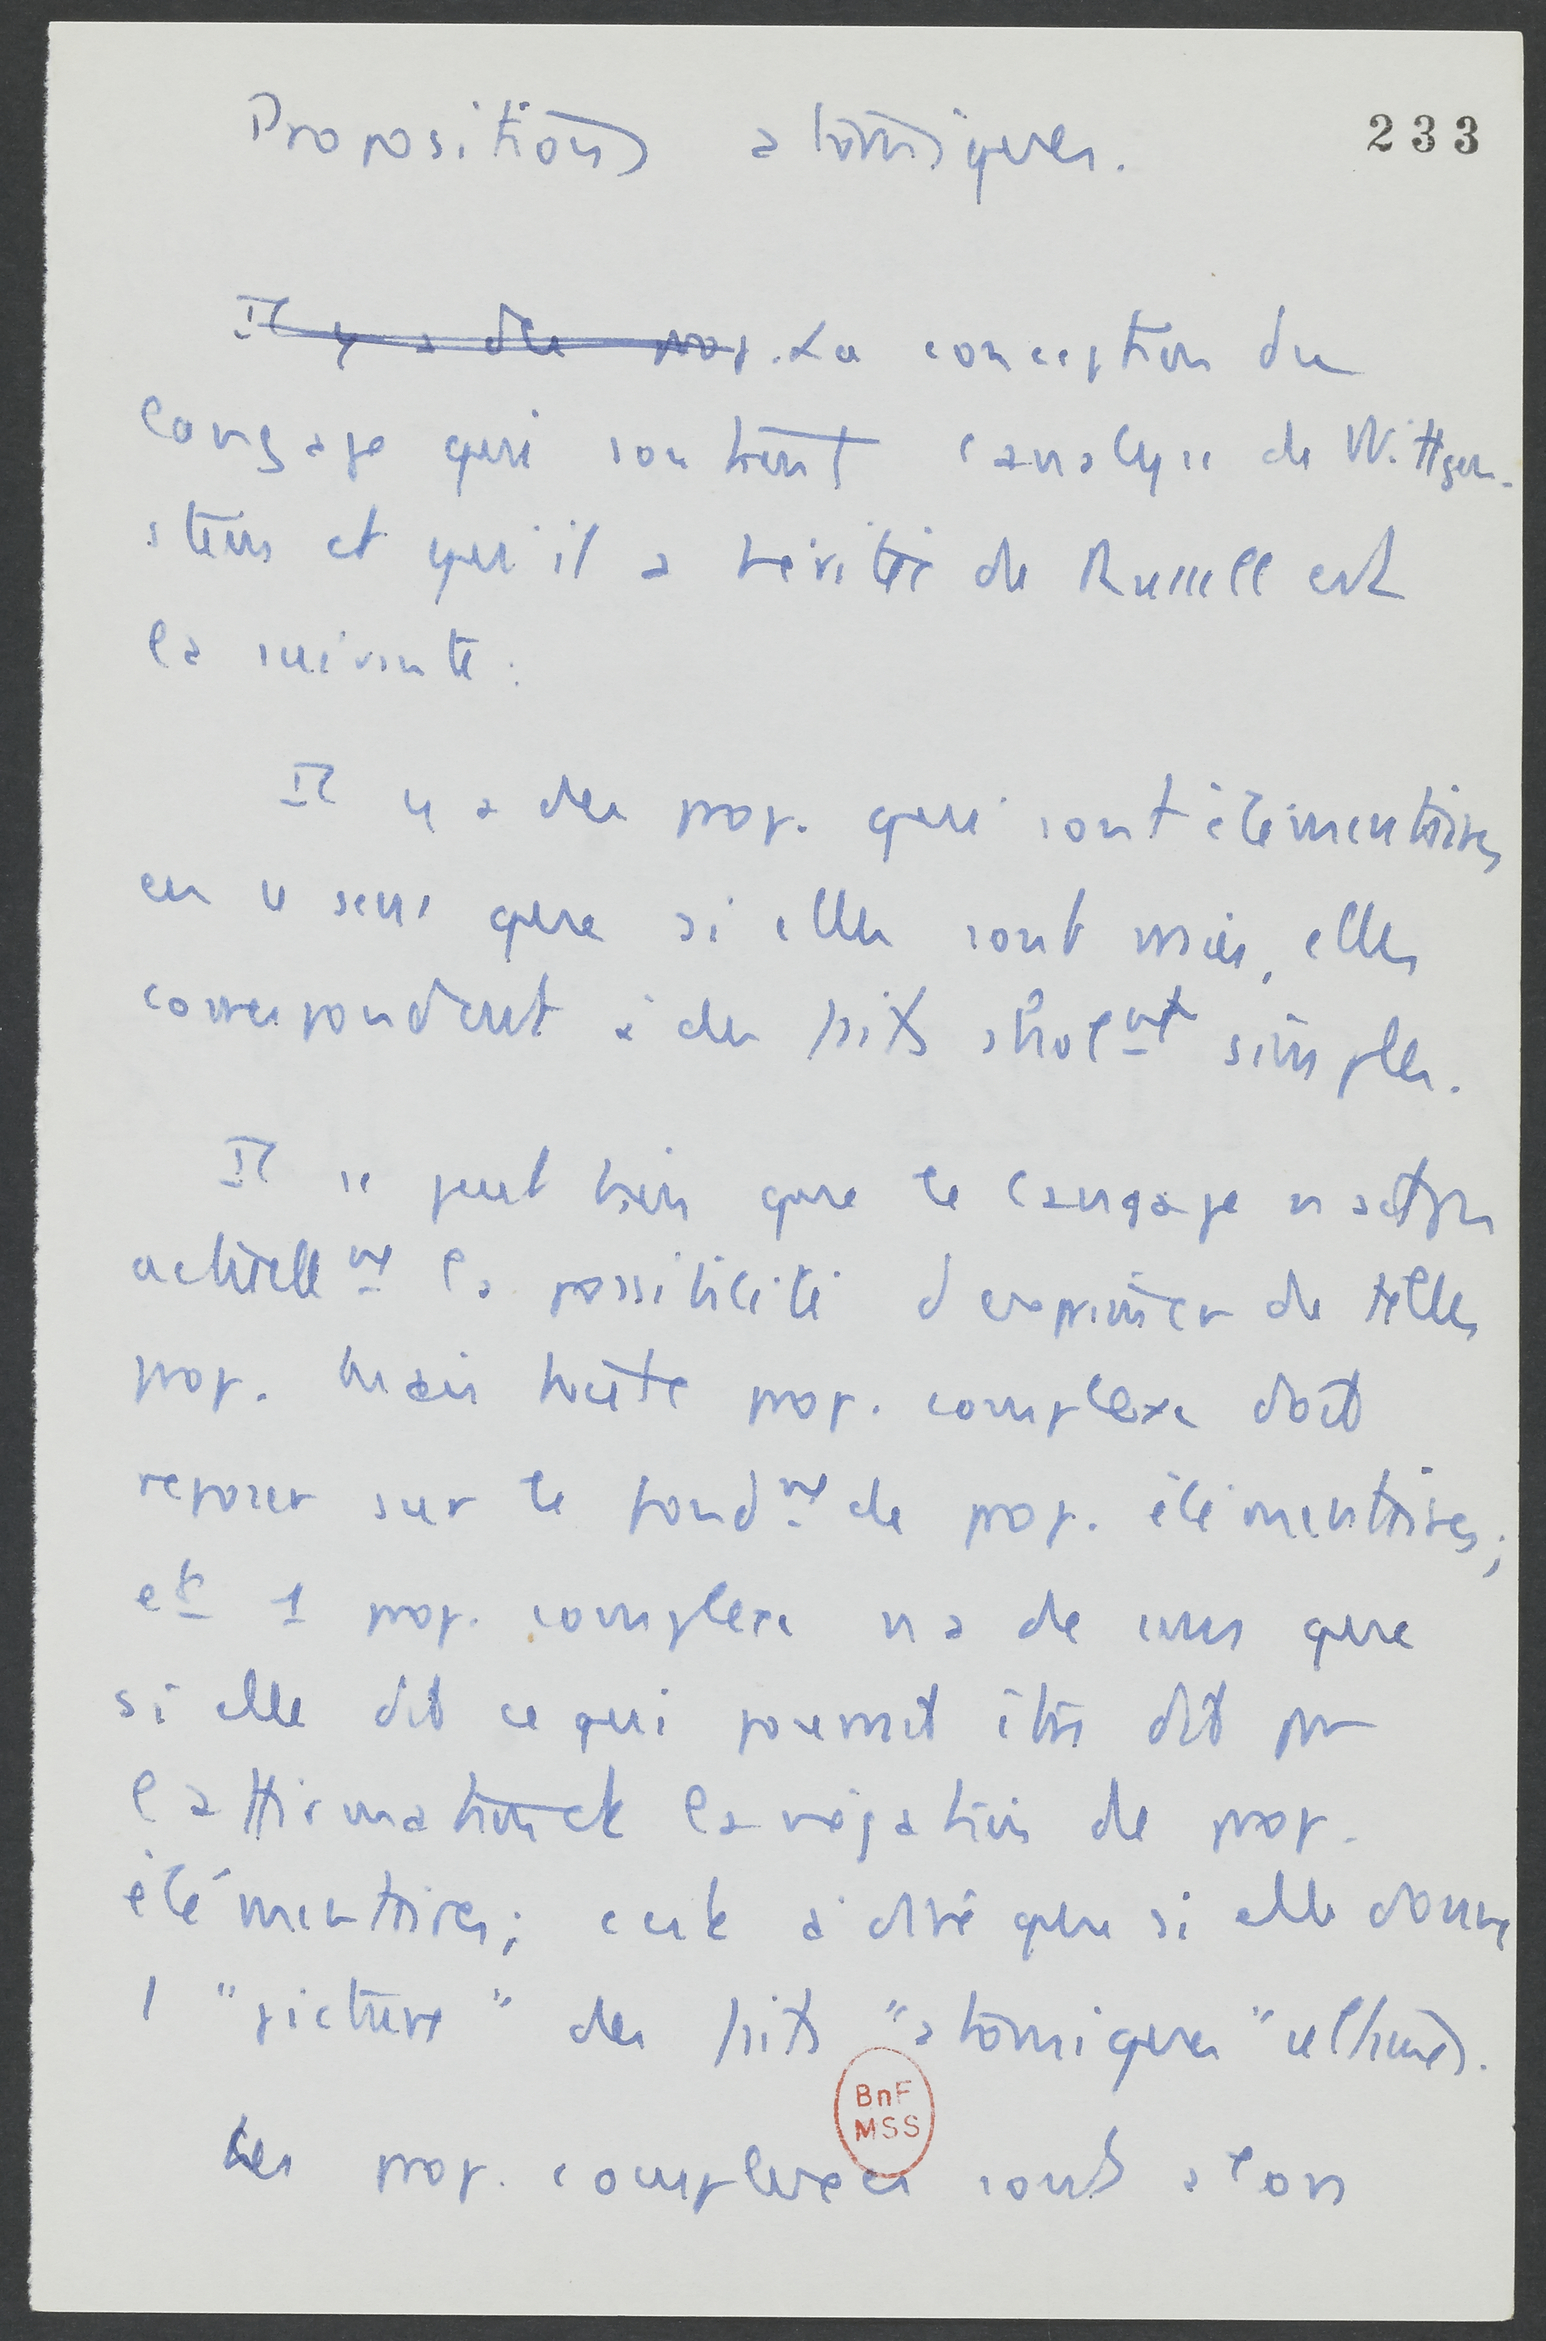 Propositions atomiques.
233
Il y a des prop. La conception du
langage qui soutient l'analyse de Wittgen-
stein et qu'il a hérité de Russell est
la suivante :
Il y a des prop. qui sont élémentaires
en ce sens que si elles sont vraies, elles
correspondent à des faits absolmt simples.
Il se peut bien que le langage n'ait pas
actuellmt la possibilité d'exprimer de telles
prop. Mais toute prop. complexe doit
reposer sur le fondmt de prop. élémentaires;
et 1 prop. complexe n'a de sens que
si elle dit ce qui pourrait être dit par
l'affirmation et la négation de prop.
élémentaires; c'est à dire que si elle donne
1 "picture" des faits "atomiques" ultimes.
BnF
MSS
Les prop. complexes sont alors